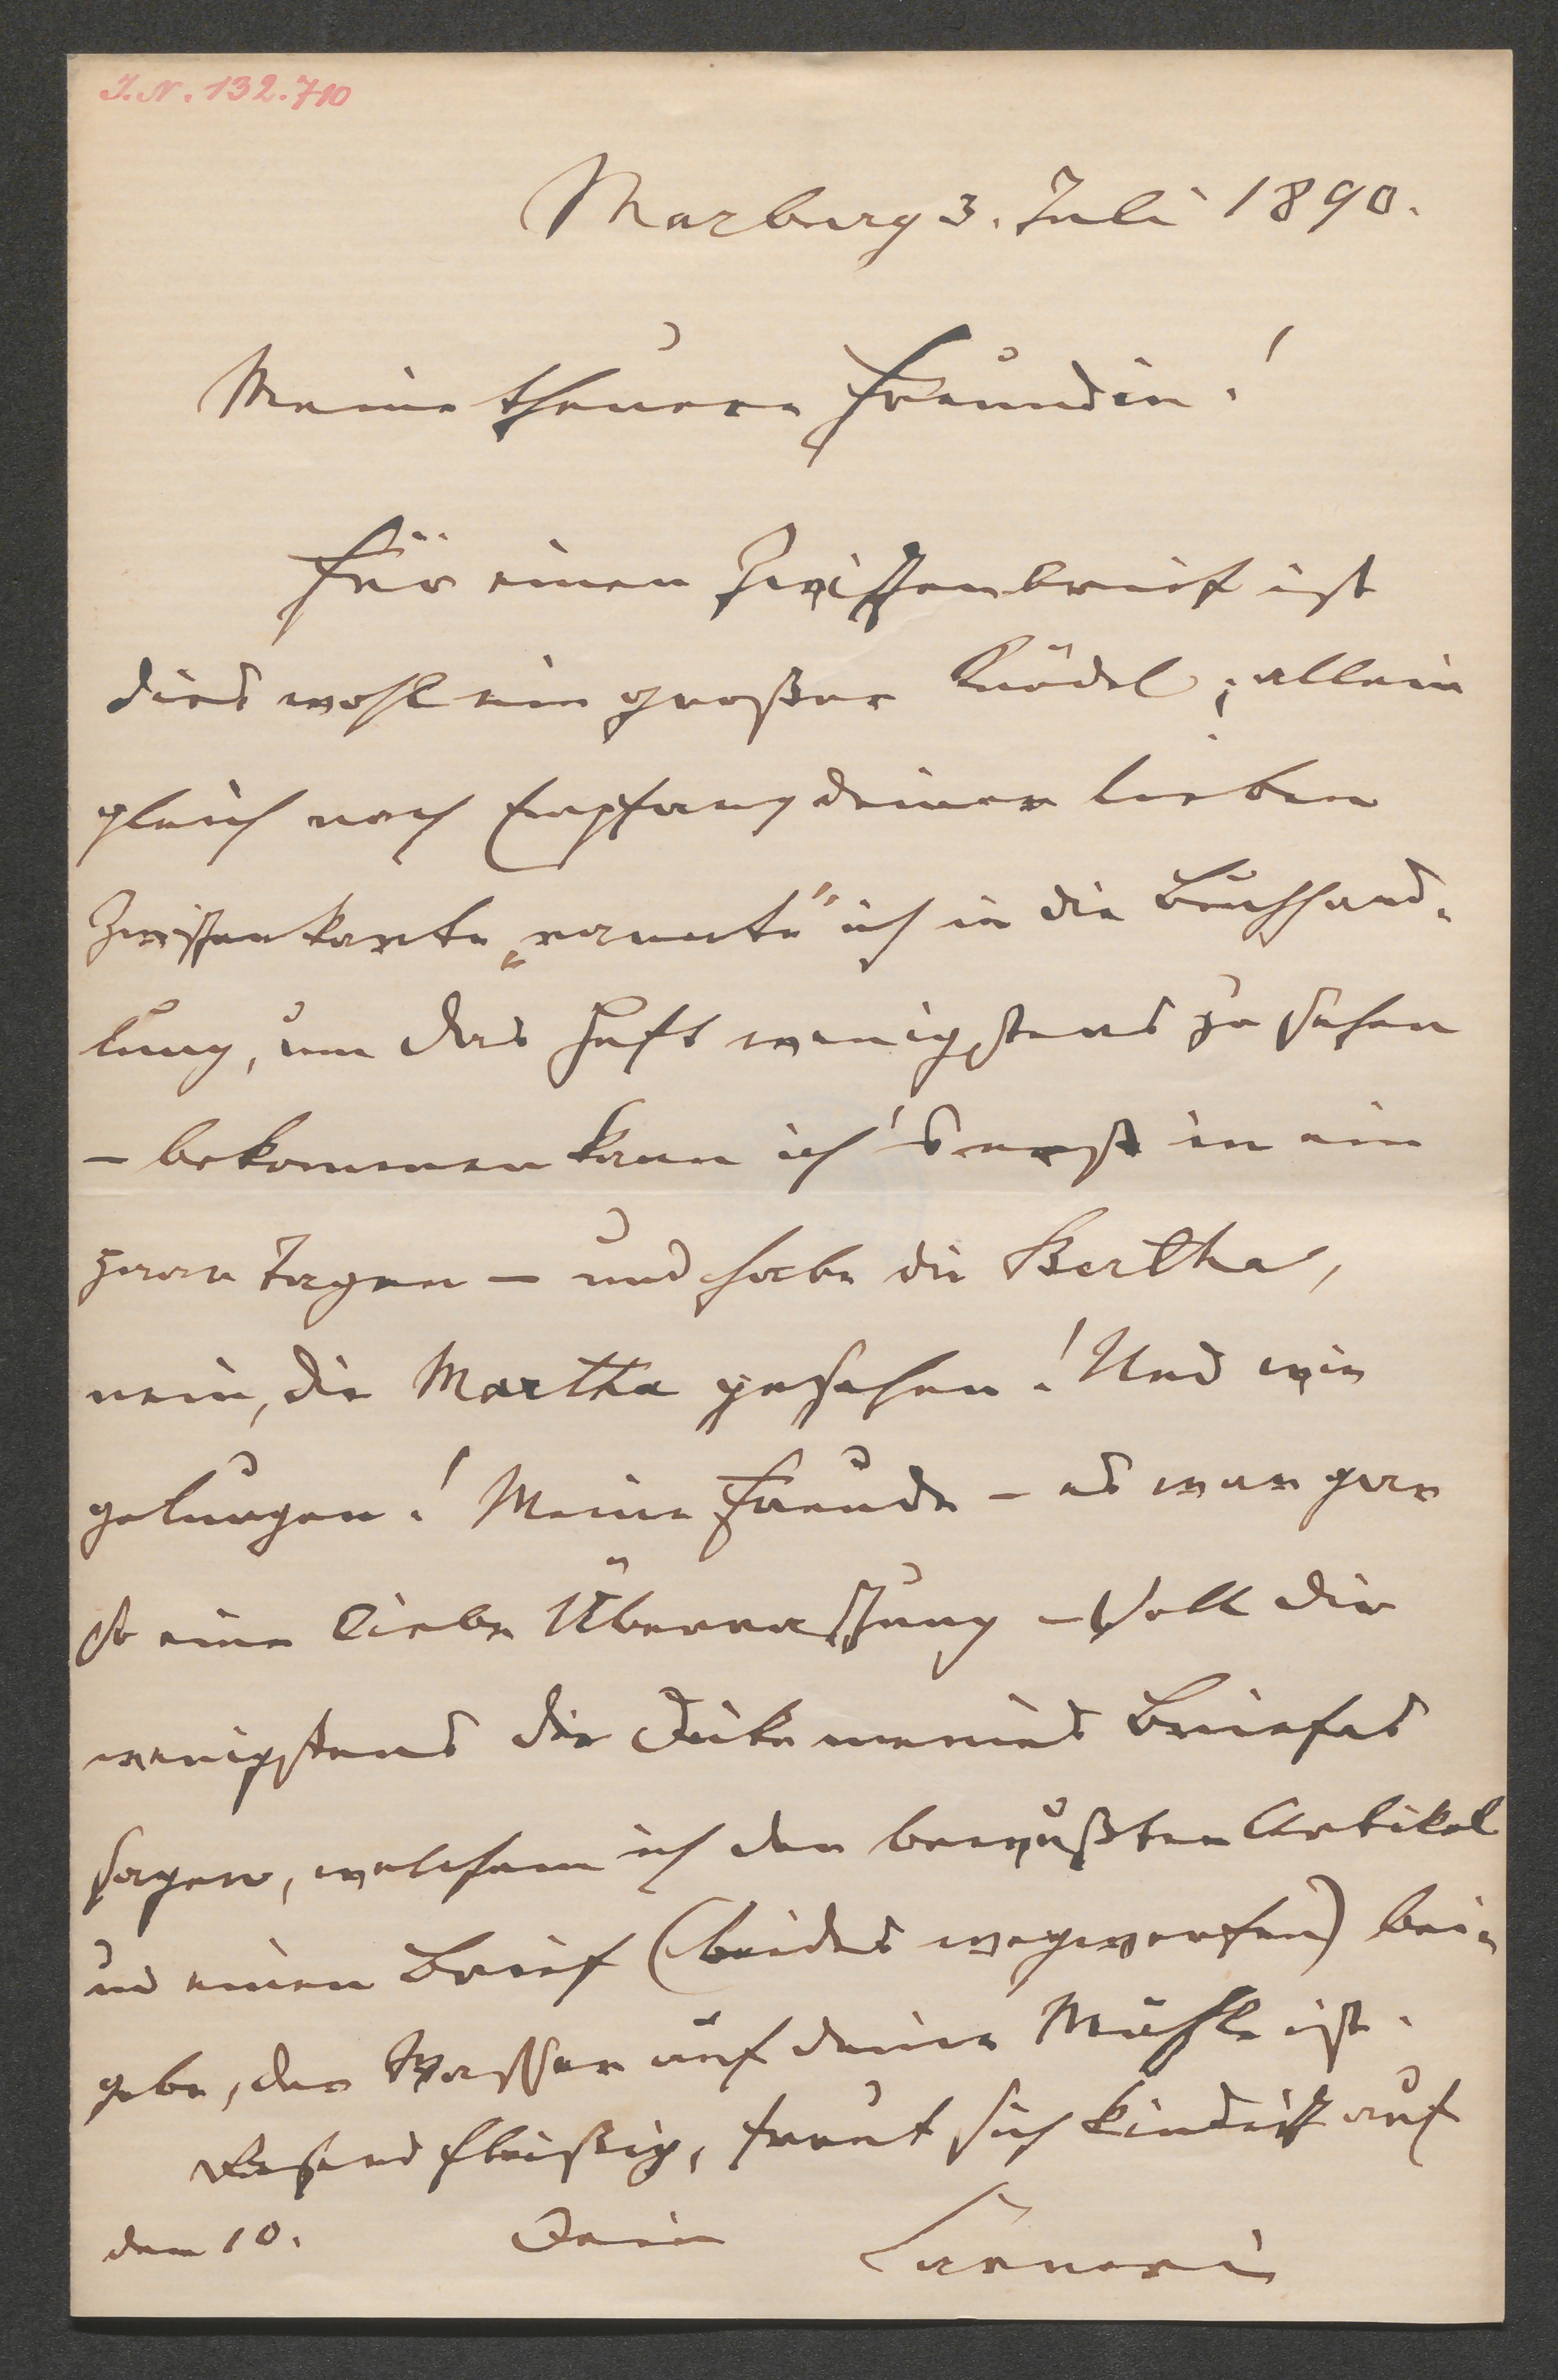 I.N. 132.710
Marburg 3. Juli 1890.
Meine theuere Freundin!
Für einen Zwischenbrief ist
dies wohl ein großer Knödel; allein
gleich nach Empfang deiner lieben
Zwischenkarte „rannte" ich in die Buchhand-
lung, um das Heft wenigstens zu sehen
– bekommen kann ich's erst in ein
paar Tagen – und habe die Bertha,
nein, die Martha gesehen! Und wie
gelungen! Meine Freude – es war gar
so eine liebe Überraschung – soll dir
wenigstens die Dicke meines Briefes
sagen, welchem ich den bewußten Artikel
und einen Brief (beides wegwerfen) bei-
gebe, der Wasser auf deine Mühle ist.
Rasend fleißig, freut sich kindisch auf
den 10. Dein Carneri